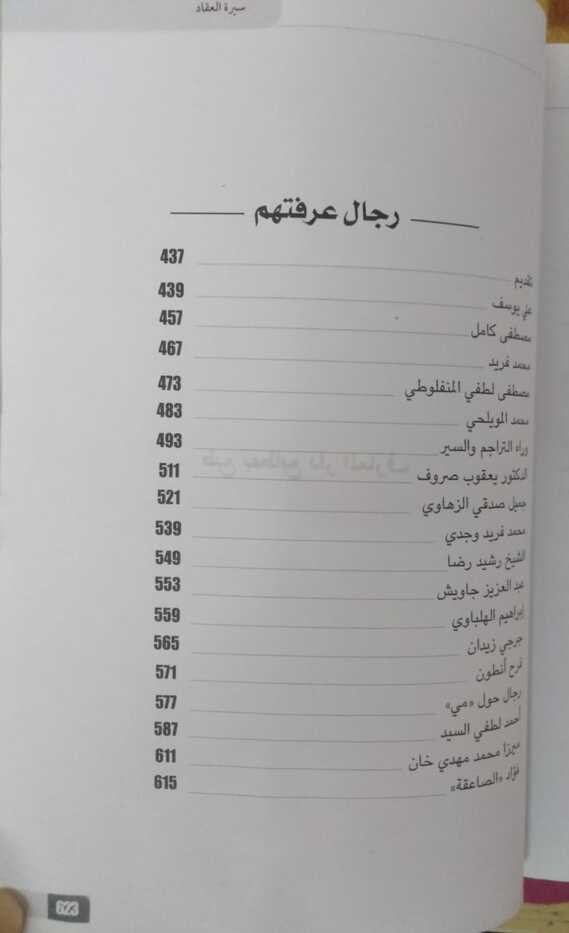 سيرة العقاد
رجال عرفتهم
تقديم 437
علي يوسف 439
مصطفى كامل 457
محمد فريد 467
مصطفى لطفي المنفلوطي 473
محمد المويلحي 483
وراء التراجم والسير 493
الدكتور يعقوب صروف 511
جميل صدقي الزهاوي 521
محمد فريد وجدي 539
الشيخ رشيد رضا 549
عبد العزيز جاويش 553
إبراهيم الهلباوي 559
جرجي زيدان 565
فرح أنطون 571
رجال حول «مي» 577
أحمد لطفي السيد 587
ميرزا محمد مهدي خان 611
فؤاد «الصاعقة» 615
623